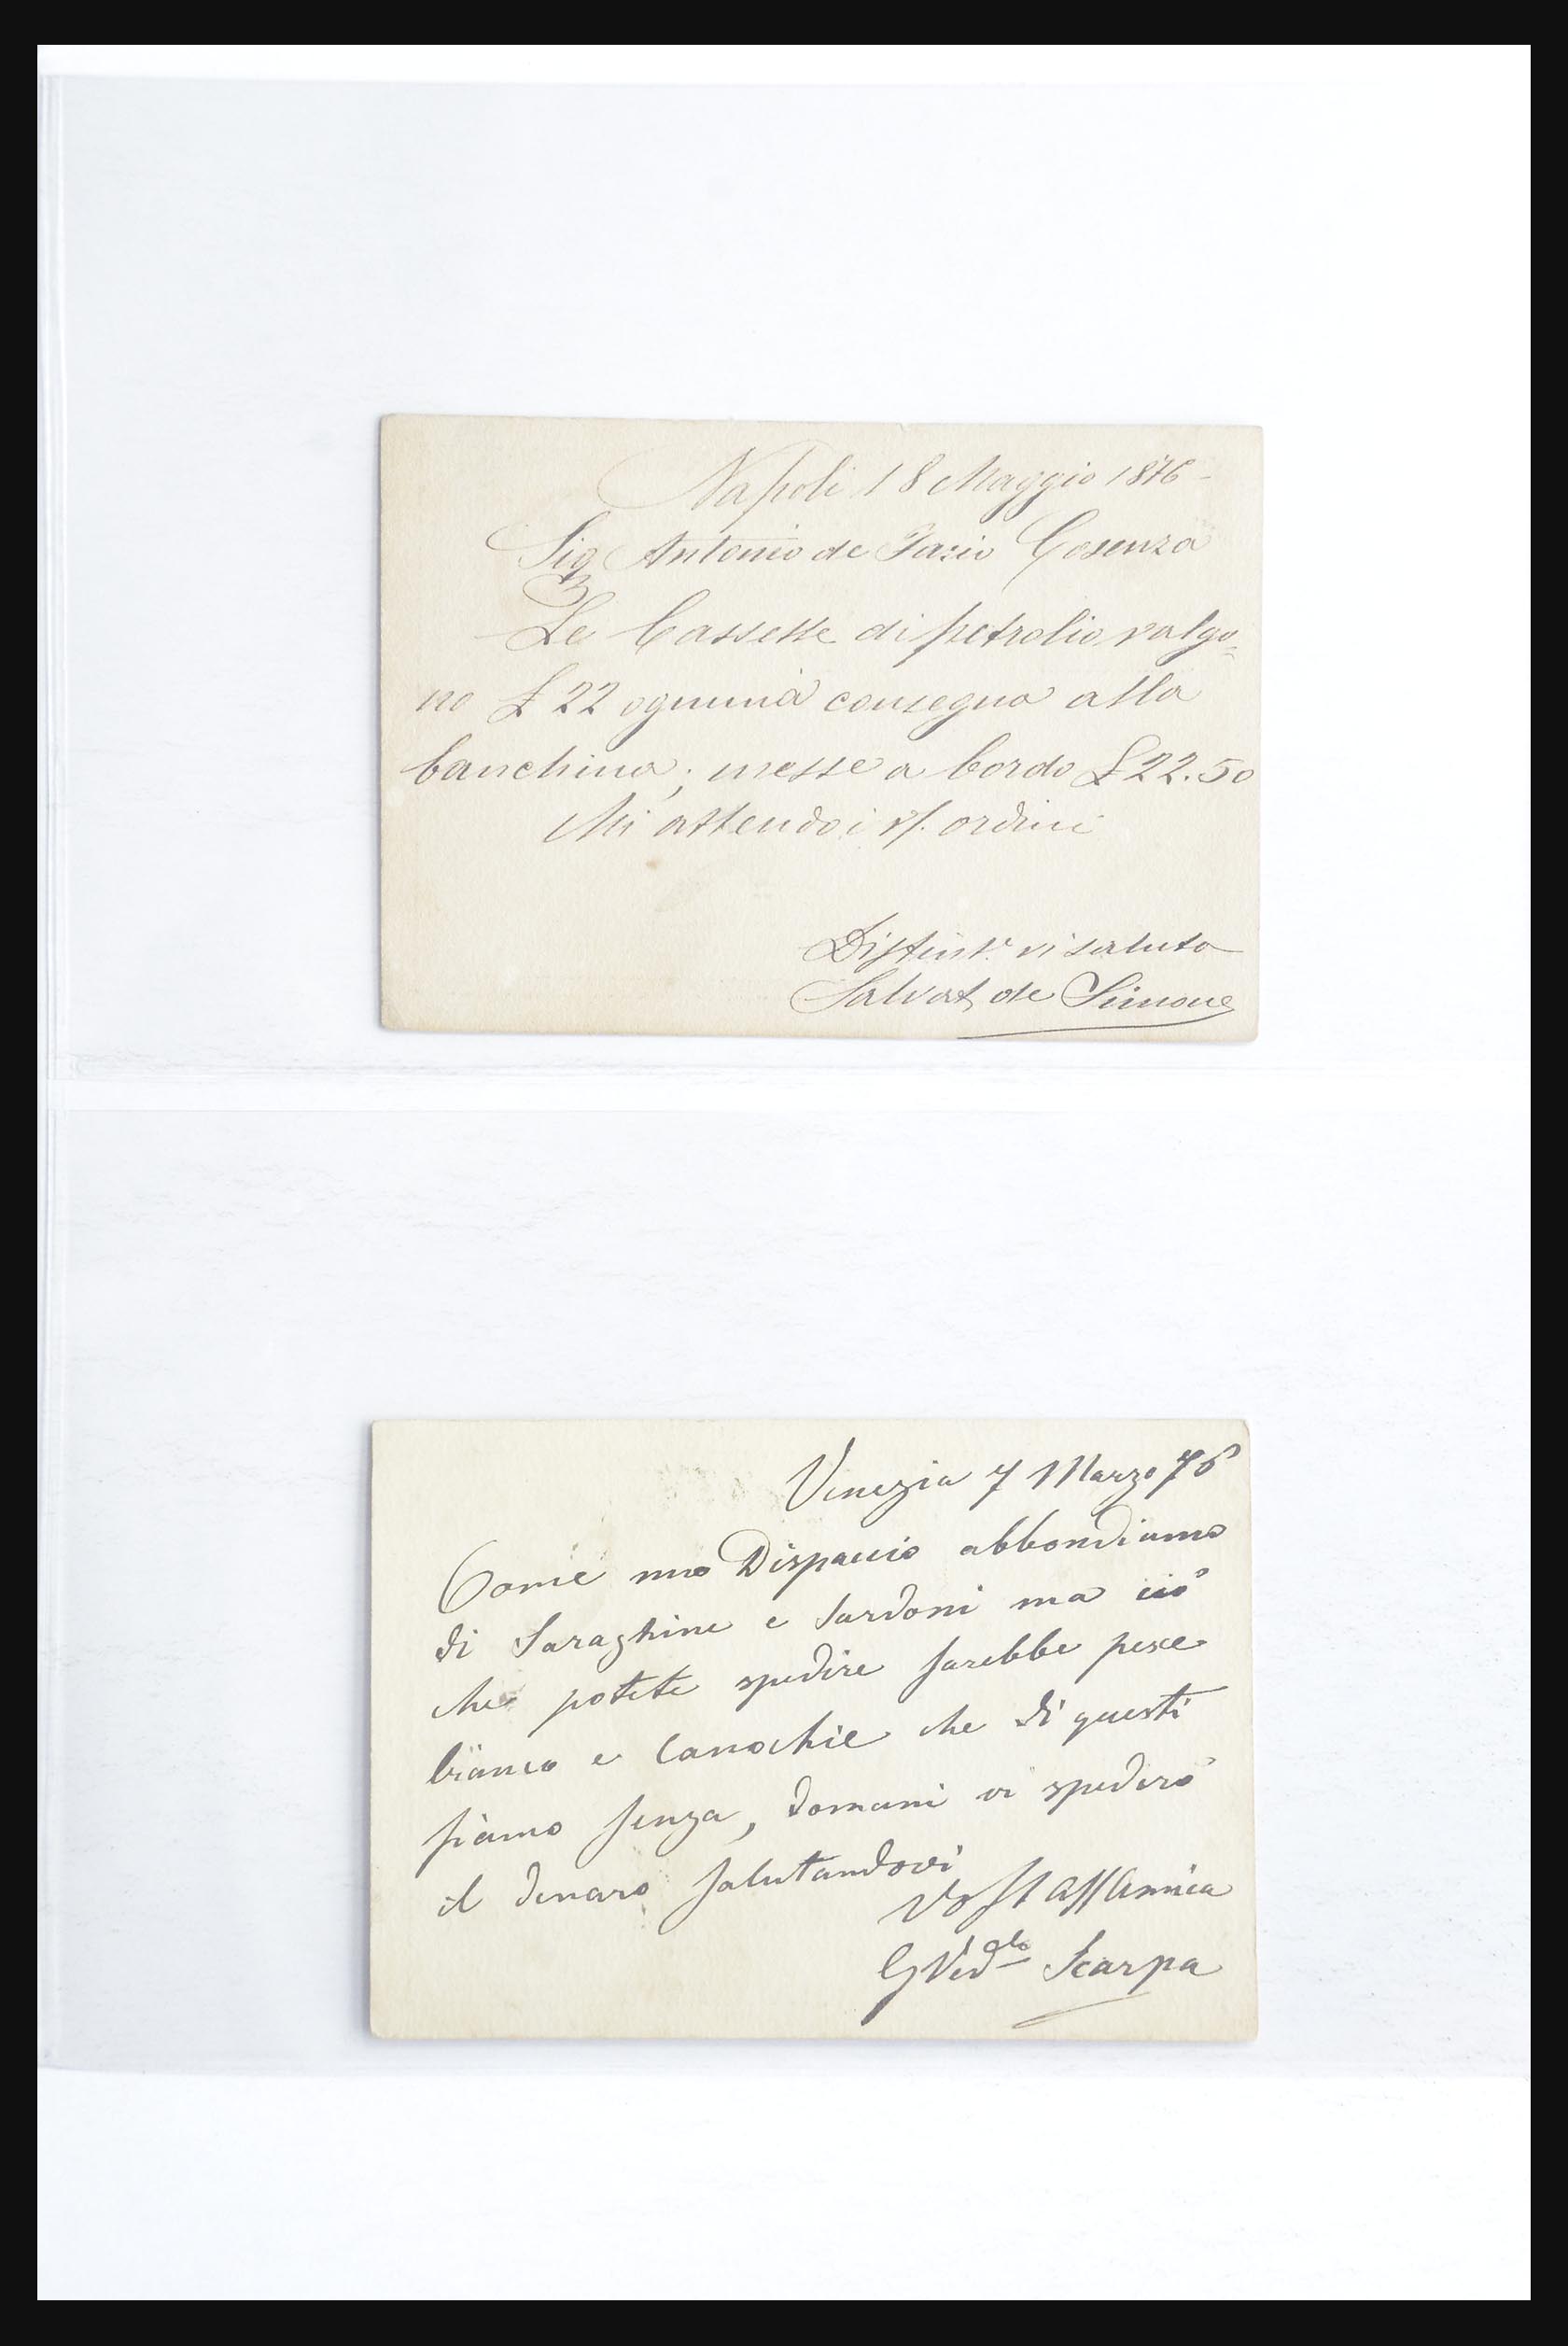 Napoli 18 Maggio 1876 -
Sig Antonio de Fazio Cosenza
Le Cassette di petrolio valgo=
no £ 22 ognuna consegna alla
banchina; messe a bordo £ 22.50
Mi attendo i v/. ordini
Distint.e vi saluto
Salvat. de Simone
Venezia 7 Marzo 76
Come mio Dispaccio abbondiamo
di Saraghine e Sardoni ma ciò
che potete spedire sarebbe pesce
bianco e Canochie che di questi
siamo senza, domani vi spederò
il denaro salutandovi
Vost Aff Amica
Scarpa